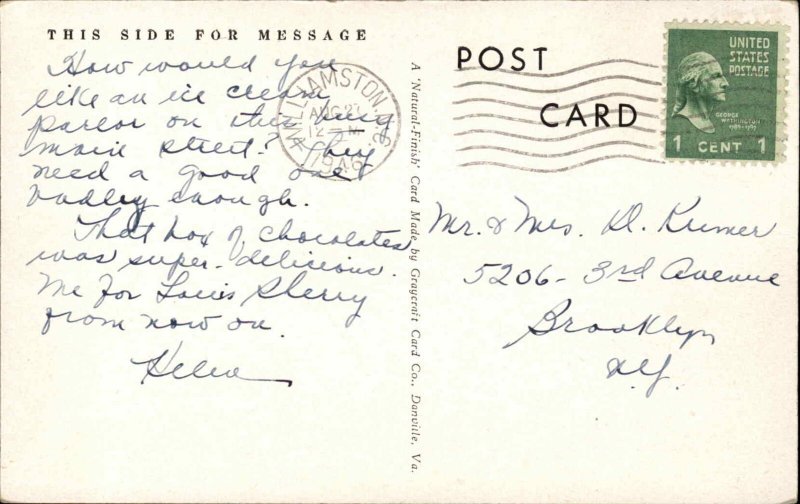 THIS SIDE FOR MESSAGE
How would you
like an ice cream
parlor on this busy
main street? They
need a good one
badley enough.
That box of chocolates
was super-delicious.
Me for Louis Sherry
from now on.
Helen
WILLIAMSTON, N.C.
AUG 2
12 M
1946
A 'Natural-Finish' Card Made by Graycraft Card Co., Danville, Va.
POST
CARD
UNITED
STATES
POSTAGE
GEORGE
WASHINGTON
1789-1797
1 CENT 1
Mr. & Mrs. D. Kumer
5206 - 3rd Avenue
Brooklyn
N.Y.